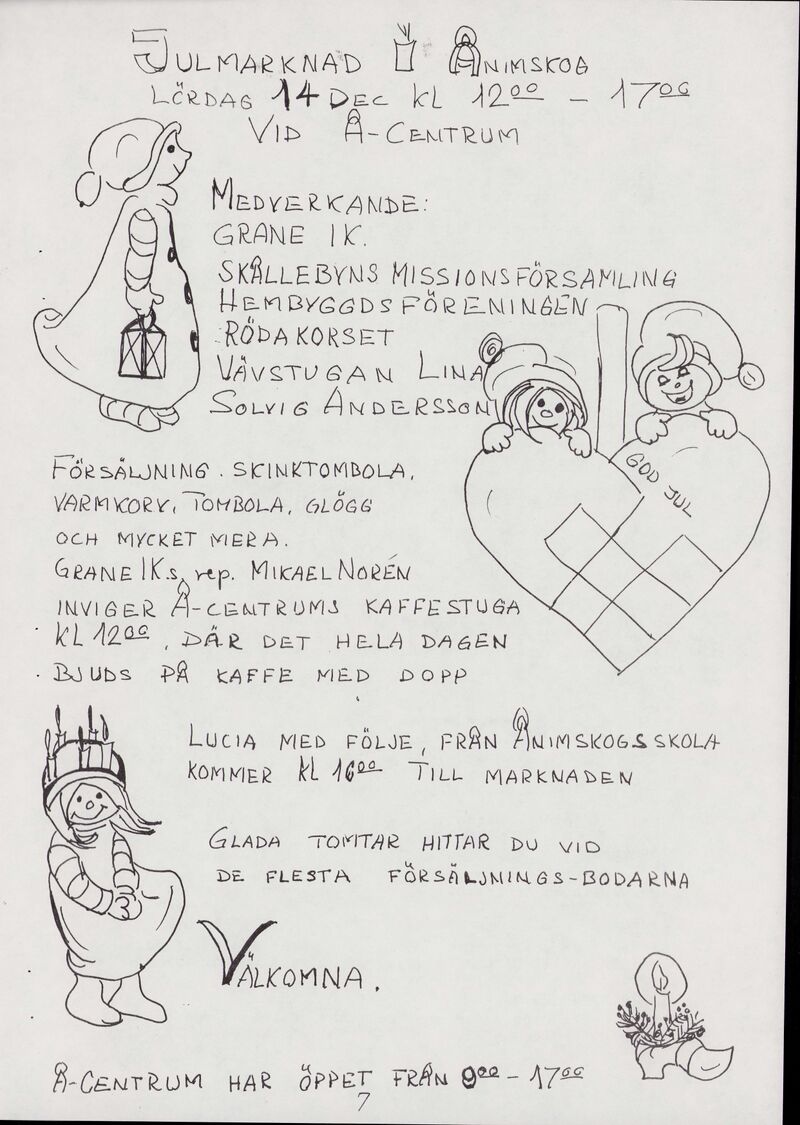 JULMARKNAD I ÅNIMSKOG
LÖRDAG 14 DEC KL 12⁰⁰ - 17⁰⁰
VID Å-CENTRUM
MEDVERKANDE:
GRANE IK.
SKÅLLEBYNS MISSIONSFÖRSAMLING
HEMBYGGDSFÖRENINGEN
RÖDAKORSET
VÄVSTUGAN LINA
SOLVIG ANDERSSON
GOD JUL
FÖRSÄLJNING. SKINKTOMBOLA,
VARMKORV, TOMBOLA, GLÖGG
OCH MYCKET MERA.
GRANE IKs rep. MIKAEL NORÉN
INVIGER Å-CENTRUMS KAFFESTUGA
KL 12⁰⁰, DÄR DET HELA DAGEN
BJUDS PÅ KAFFE MED DOPP
LUCIA MED FÖLJE, FRÅN ÅNIMSKOGS SKOLA
KOMMER KL 16⁰⁰ TILL MARKNADEN
GLADA TOMTAR HITTAR DU VID
DE FLESTA FÖRSÄLJNINGS-BODARNA
VÄLKOMNA.
Å-CENTRUM HAR ÖPPET FRÅN 9⁰⁰ - 17⁰⁰
7